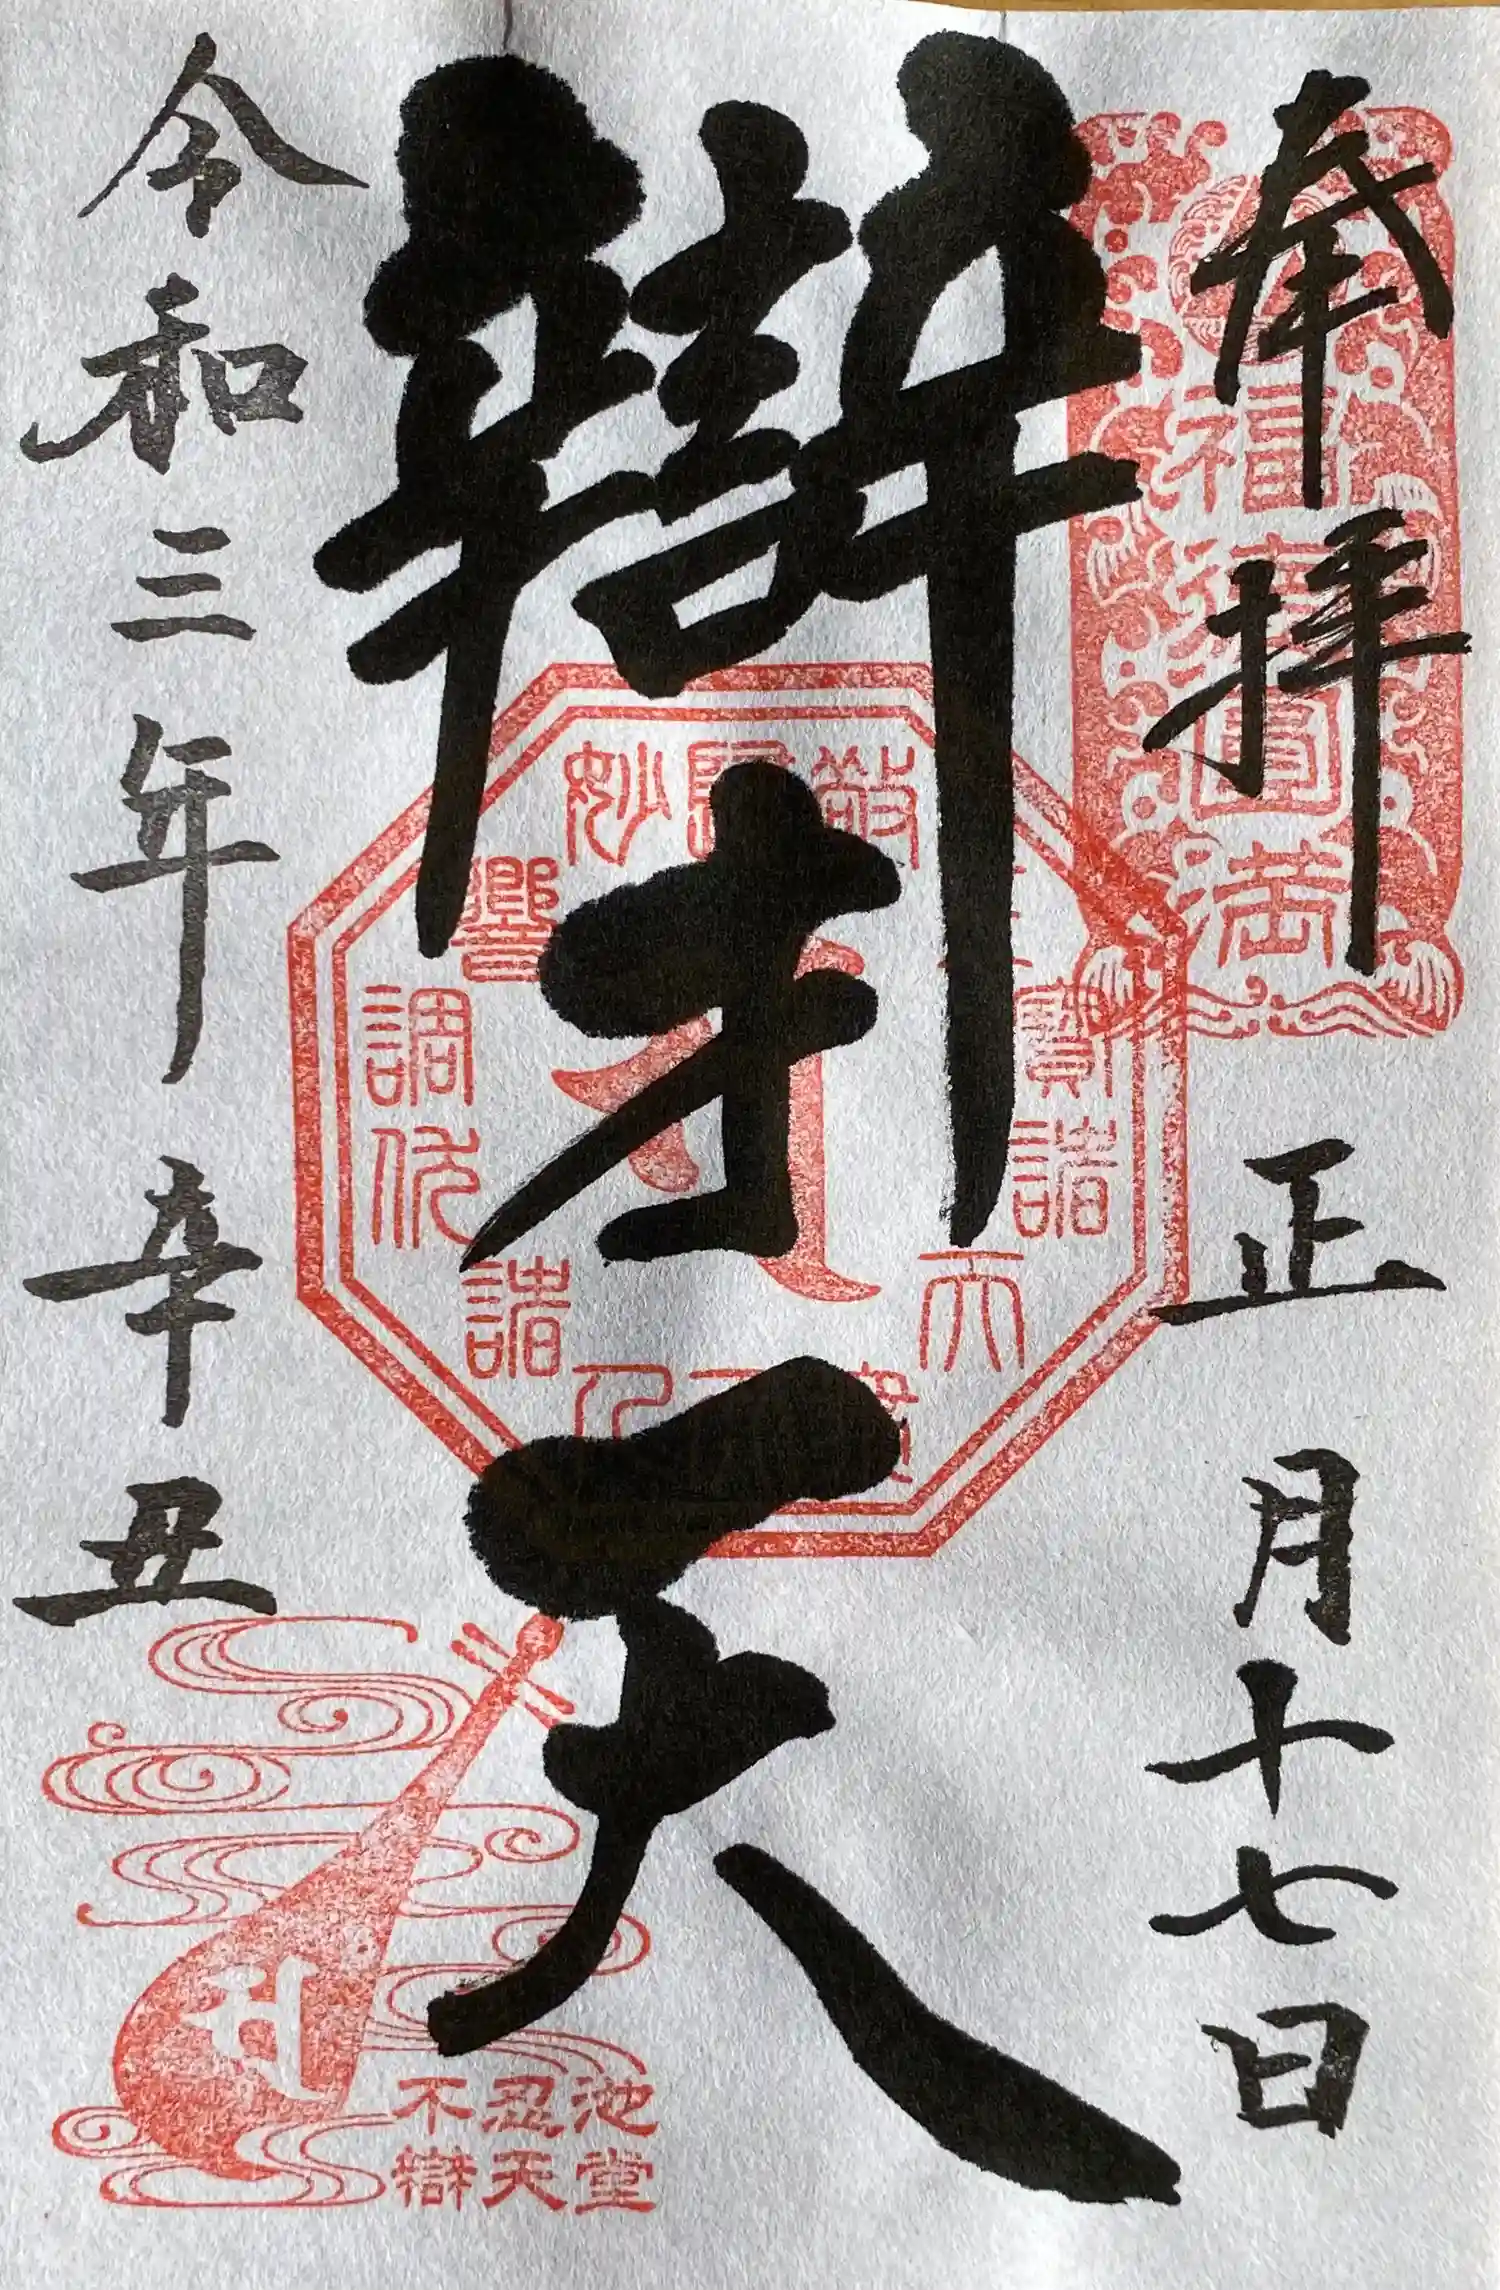 奉拝
正月十七日
福壽圓満
辯才天
令和三年
辛丑
不忍池
辯天堂